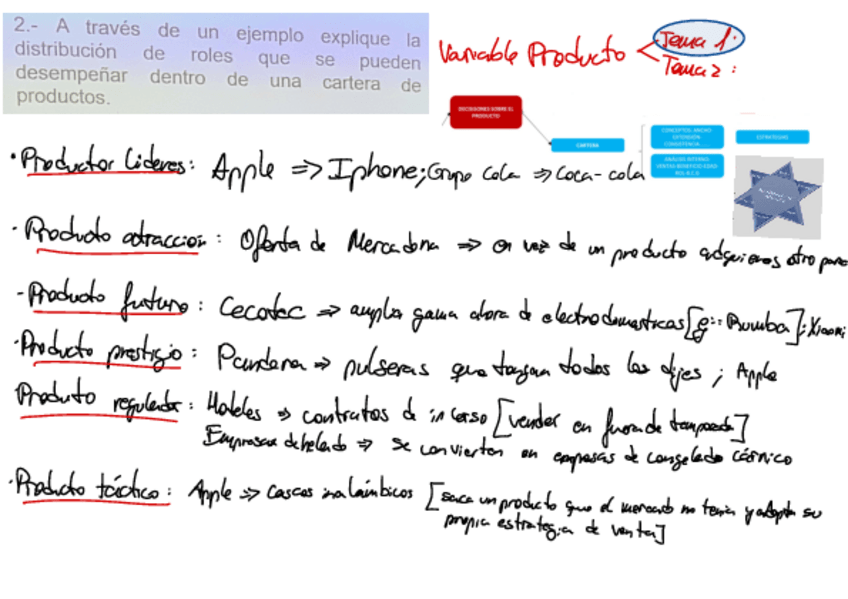 2.- A través de un ejemplo explique la
distribución de roles que se pueden
desempeñar dentro de una cartera de
productos.
Variable Producto < Tema 1:
Tema 2:
DECISIONES SOBRE EL
PRODUCTO
CARTERA
ESTRATEGIAS
· Productor Lideres: Apple => Iphone; Grupo Cola => Coca-cola
· Producto atraccion: Oferta de Mercadona => en vez de un producto adquieres otro para
- Producto futuro: Cecotec => amplia gama ahora de electrodomesticos [ej: Rumba]; Xiaomi
· Producto prestigio: Pandora => pulseras que tengan todos los dijes; Apple
Produto regulador: Hoteles => contratos de inserso [vender en fuera de temporada]
Empresas de helado => se convierten en empresas de congelado cárnico
· Producto táctico: Apple => Cascos inalámbicos [saca un producto que el mercado no tenia y adopta su
propia estrategia de venta]